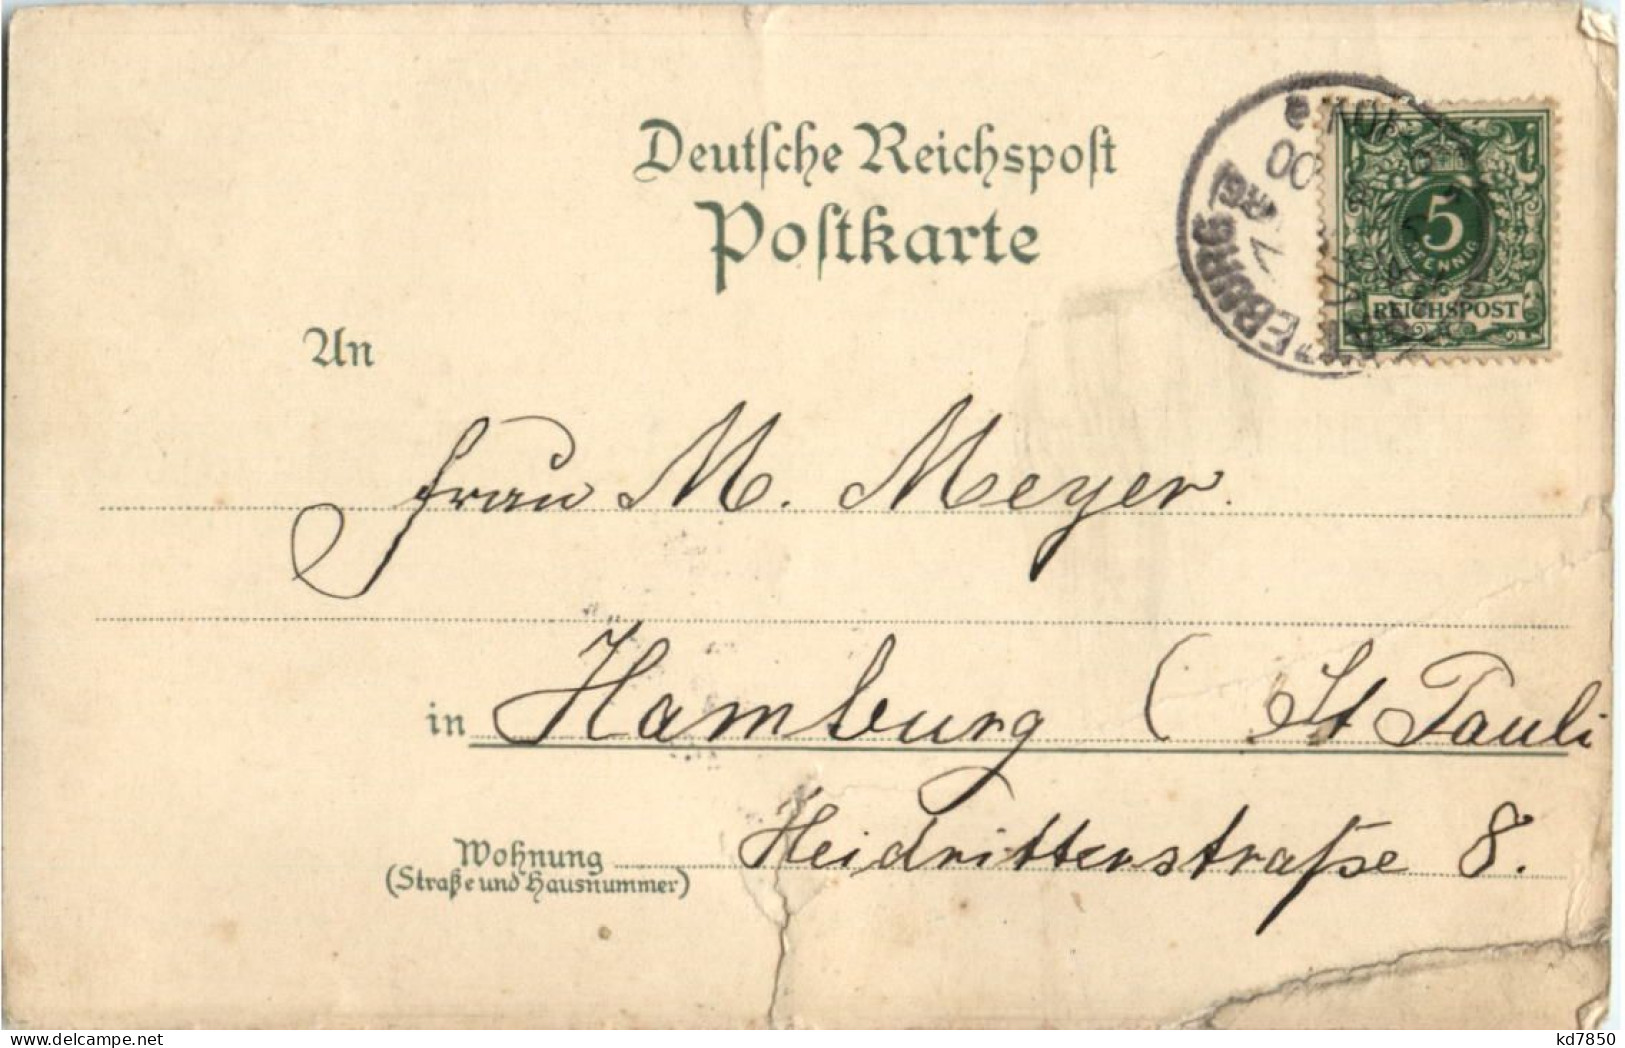 Deutsche Reichspost
Postkarte
An
Frau M. Meyer.
in Hamburg (St Pauli
Wohnung
(Straße und Hausnummer)
Heidritterstraße 8.
5
PFENNIG
REICHSPOST
00
kd7850